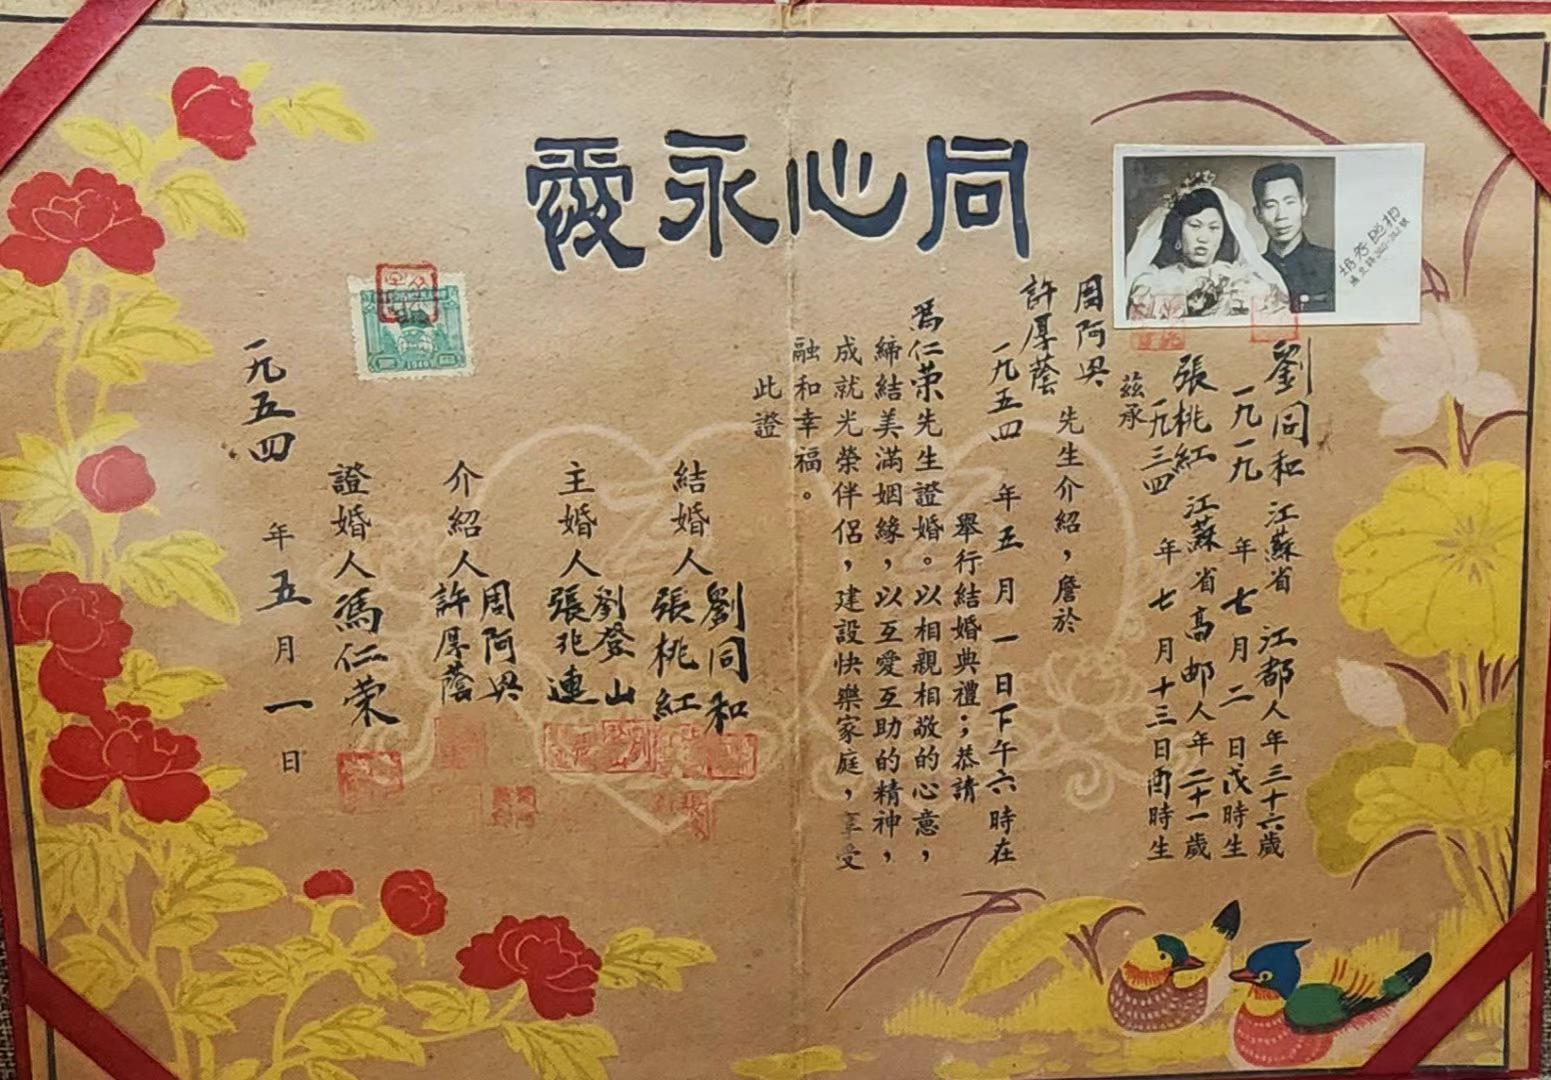 同心永愛
劉同和江蘇省江都人年三十六歲
一九一九年七月二日戌時生
張桃紅江蘇省高邮人年二十一歲
一九三四年七月十三日酉時生
茲承
周阿
許厚蔭
先生介紹，詹於
一九五四年五月一日下午六時在
舉行結婚典禮；恭請
馮仁荣先生證婚。以相親相敬的心意，
締結美滿姻緣，以互愛互助的精神，
成就光榮伴侶，建設快樂家庭，享受
融和幸福。
此證
結婚人
劉同和
張桃紅
主婚人
劉登山
張兆連
介紹人
周阿
許厚蔭
證婚人馮仁荣
一九五四年五月一日